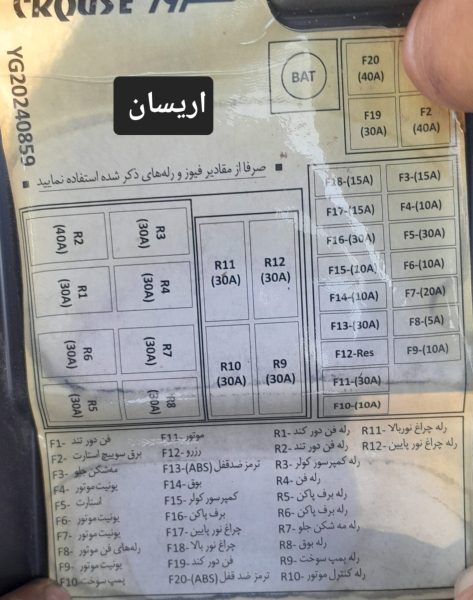 CROUSE
YG20240859
اریسان
BAT
F20
(40A)
F19
(30A)
F2
(40A)
■ صرفا از مقادیر فیوز و رله‌های ذکر شده استفاده نمایید ■
R2
(40A)
R3
(30A)
R1
(30A)
R4
(30A)
R6
(30A)
R7
(30A)
R5
(30A)
R8
(30A)
R11
(30A)
R12
(30A)
R10
(30A)
R9
(30A)
F18-(15A)
F3-(15A)
F17-(15A)
F4-(10A)
F16-(30A)
F5-(30A)
F15-(10A)
F6-(10A)
F14-(10A)
F7-(20A)
F13-(30A)
F8-(5A)
F12-Res
F9-(10A)
F11-(30A)
F10-(10A)
F1- فن دور تند
F2- برق سوییچ استارت
F3- مه‌شکن جلو
F4- یونیت موتور
F5- استارت
F6- یونیت موتور
F7- یونیت موتور
F8- رله‌های فن موتور
F9- یونیت موتور
F10- پمپ سوخت
F11- موتور
F12- رزرو
F13-(ABS) ترمز ضدقفل
F14- بوق
F15- کمپرسور کولر
F16- برف پاکن
F17- چراغ نور پایین
F18- چراغ نور بالا
F19- فن دور کند
F20-(ABS) ترمز ضد قفل
R1- رله فن دور کند
R2- رله فن دور تند
R3- رله کمپرسور کولر
R4- رله فن
R5- رله برف پاکن
R6- رله برف پاکن
R7- رله مه شکن جلو
R8- رله بوق
R9- رله پمپ سوخت
R10- رله کنترل موتور
R11- رله چراغ نوربالا
R12- رله چراغ نور پایین